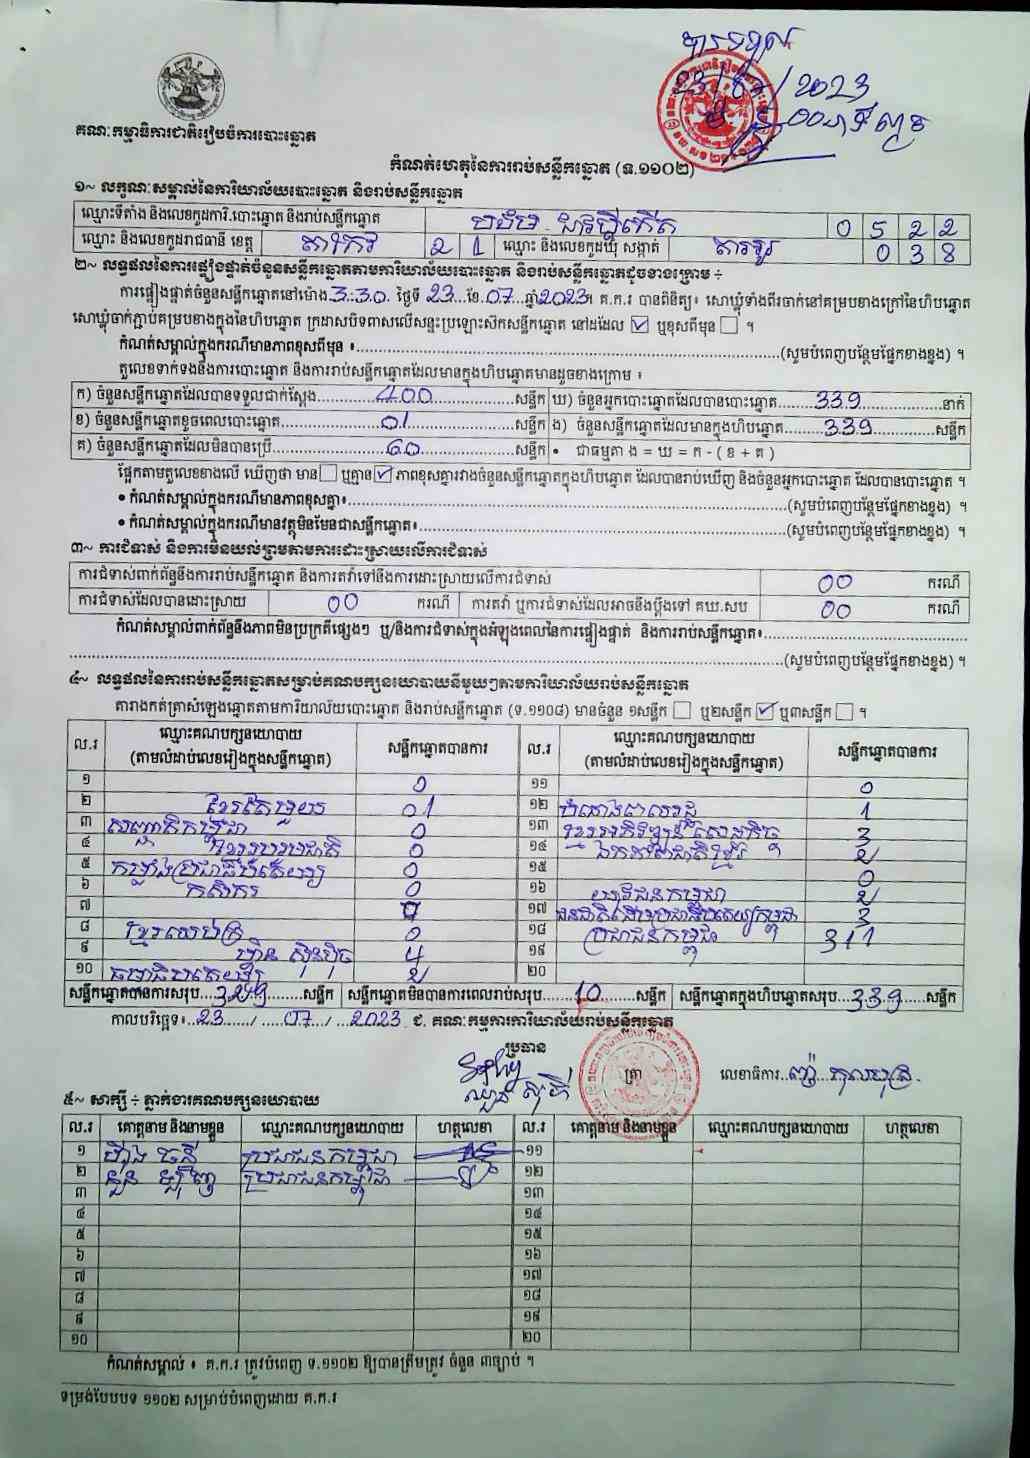 បានទទួល
23/07/2023
គណៈកម្មាធិការជាតិរៀបចំការបោះឆ្នោត
កំណត់ហេតុនៃការរាប់សន្លឹកឆ្នោត (ទ.១១០២)
១~ លក្ខណៈសម្គាល់នៃការិយាល័យបោះឆ្នោត និងរាប់សន្លឹកឆ្នោត
ឈ្មោះទីតាំង និងលេខកូដការិ.បោះឆ្នោត និងរាប់សន្លឹកឆ្នោត 0 5 2 2
ឈ្មោះ និងលេខកូដរាជធានី ខេត្ត តាកែវ 2 1 ឈ្មោះ និងលេខកូដឃុំ សង្កាត់ 0 3 8
២~ លទ្ធផលនៃការផ្ទៀងផ្ទាត់ចំនួនសន្លឹកឆ្នោតតាមការិយាល័យបោះឆ្នោត និងរាប់សន្លឹកឆ្នោតដូចខាងក្រោម ÷
ការផ្ទៀងផ្ទាត់ចំនួនសន្លឹកឆ្នោតនៅម៉ោង 3:30 ថ្ងៃទី 23 ខែ 07 ឆ្នាំ 2023។ គ.ក.រ បានពិនិត្យ៖ សោឃ្លុំទាំងពីរចាក់នៅគម្របខាងក្រៅនៃហិបឆ្នោត
សោឃ្លុំចាក់ភ្ជាប់គម្របខាងក្នុងនៃហិបឆ្នោត ក្រដាសបិទពាសលើសន្ទះប្រឡោះស៊កសន្លឹកឆ្នោត នៅដដែល ☑ ឬខុសពីមុន ☐ ។
កំណត់សម្គាល់ក្នុងករណីមានភាពខុសពីមុន ៖ (សូមបំពេញបន្ថែមផ្នែកខាងខ្នង) ។
តួលេខទាក់ទងនឹងការបោះឆ្នោត និងការរាប់សន្លឹកឆ្នោតដែលមានក្នុងហិបឆ្នោតមានដូចខាងក្រោម ៖
ក) ចំនួនសន្លឹកឆ្នោតដែលបានទទួលជាក់ស្តែង 400 សន្លឹក ឃ) ចំនួនអ្នកបោះឆ្នោតដែលបានបោះឆ្នោត 339 នាក់
ខ) ចំនួនសន្លឹកឆ្នោតខូចពេលបោះឆ្នោត 01 សន្លឹក ង) ចំនួនសន្លឹកឆ្នោតដែលមានក្នុងហិបឆ្នោត 339 សន្លឹក
គ) ចំនួនសន្លឹកឆ្នោតដែលមិនបានប្រើ 60 សន្លឹក • ជាធម្មតា ង = ឃ = ក - ( ខ + គ )
ផ្អែកតាមតួលេខខាងលើ ឃើញថា មាន ☐ ឬគ្មាន ☑ ភាពខុសគ្នារវាងចំនួនសន្លឹកឆ្នោតក្នុងហិបឆ្នោត ដែលបានរាប់ឃើញ និងចំនួនអ្នកបោះឆ្នោត ដែលបានបោះឆ្នោត ។
• កំណត់សម្គាល់ក្នុងករណីមានភាពខុសគ្នា៖ (សូមបំពេញបន្ថែមផ្នែកខាងខ្នង) ។
• កំណត់សម្គាល់ក្នុងករណីមានវត្ថុមិនមែនជាសន្លឹកឆ្នោត៖ (សូមបំពេញបន្ថែមផ្នែកខាងខ្នង) ។
៣~ ការជំទាស់ និងការមិនយល់ព្រមតាមការដោះស្រាយលើការជំទាស់
ការជំទាស់ពាក់ព័ន្ធនឹងការរាប់សន្លឹកឆ្នោត និងការតវ៉ាទៅនឹងការដោះស្រាយលើការជំទាស់ 00 ករណី
ការជំទាស់ដែលបានដោះស្រាយ 00 ករណី ការតវ៉ា ឬការជំទាស់ដែលអាចនឹងប្តឹងទៅ គឃ.សប 00 ករណី
កំណត់សម្គាល់ពាក់ព័ន្ធនឹងភាពមិនប្រក្រតីផ្សេងៗ ឬ/និងការជំទាស់ក្នុងអំឡុងពេលនៃការផ្ទៀងផ្ទាត់ និងការរាប់សន្លឹកឆ្នោត៖
(សូមបំពេញបន្ថែមផ្នែកខាងខ្នង) ។
៤~ លទ្ធផលនៃការរាប់សន្លឹកឆ្នោតសម្រាប់គណបក្សនយោបាយនីមួយៗតាមការិយាល័យរាប់សន្លឹកឆ្នោត
តារាងកត់ត្រាសំឡេងឆ្នោតតាមការិយាល័យបោះឆ្នោត និងរាប់សន្លឹកឆ្នោត (ទ.១១០៨) មានចំនួន ១សន្លឹក ☐ ឬ២សន្លឹក ☑ ឬ៣សន្លឹក ☐ ។
ល.រ ឈ្មោះគណបក្សនយោបាយ (តាមលំដាប់លេខរៀងក្នុងសន្លឹកឆ្នោត) សន្លឹកឆ្នោតបានការ ល.រ ឈ្មោះគណបក្សនយោបាយ (តាមលំដាប់លេខរៀងក្នុងសន្លឹកឆ្នោត) សន្លឹកឆ្នោតបានការ
១ 0 ១១ 0
២ ខ្មែរតែមួយ 01 ១២ 1
៣ សញ្ជាតិកម្ពុជា 0 ១៣ ខ្មែរអភិវឌ្ឍន៍សេដ្ឋកិច្ច 3
៤ 0 ១៤ ឯកភាពជាតិខ្មែរ 2
៥ កម្លាំងប្រជាធិបតេយ្យ 0 ១៥ 0
៦ កសិករ 0 ១៦ យុវជនកម្ពុជា 2
៧ 0 ១៧ ជនជាតិដើមប្រជាធិបតេយ្យកម្ពុជា 3
៨ ខ្មែរឈប់ក្រ 0 ១៨ ប្រជាជនកម្ពុជា 311
៩ ហ៊្វុនស៊ិនប៉ិច 4 ១៩
១០ ធម្មាធិបតេយ្យ 2 ២០
សន្លឹកឆ្នោតបានការសរុប 329 សន្លឹក សន្លឹកឆ្នោតមិនបានការពេលរាប់សរុប 10 សន្លឹក សន្លឹកឆ្នោតក្នុងហិបឆ្នោតសរុប 339 សន្លឹក
កាលបរិច្ឆេទ៖ 23 / 07 / 2023 ជ. គណៈកម្មការការិយាល័យរាប់សន្លឹកឆ្នោត
ប្រធាន
ត្រា លេខាធិការ
៥~ សាក្សី ÷ ភ្នាក់ងារគណបក្សនយោបាយ
ល.រ គោត្តនាម និងនាមខ្លួន ឈ្មោះគណបក្សនយោបាយ ហត្ថលេខា ល.រ គោត្តនាម និងនាមខ្លួន ឈ្មោះគណបក្សនយោបាយ ហត្ថលេខា
១ ប្រជាជនកម្ពុជា ១១
២ ប្រជាជនកម្ពុជា ១២
៣ ១៣
៤ ១៤
៥ ១៥
៦ ១៦
៧ ១៧
៨ ១៨
៩ ១៩
១០ ២០
កំណត់សម្គាល់ ៖ គ.ក.រ ត្រូវបំពេញ ទ.១១០២ ឱ្យបានត្រឹមត្រូវ ចំនួន ៣ច្បាប់ ។
ទម្រង់បែបបទ ១១០២ សម្រាប់បំពេញដោយ គ.ក.រ